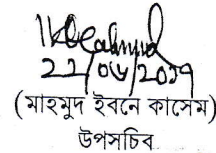 22/06/2019
(মাহমুদ ইবনে কাসেম)
উপসচিব